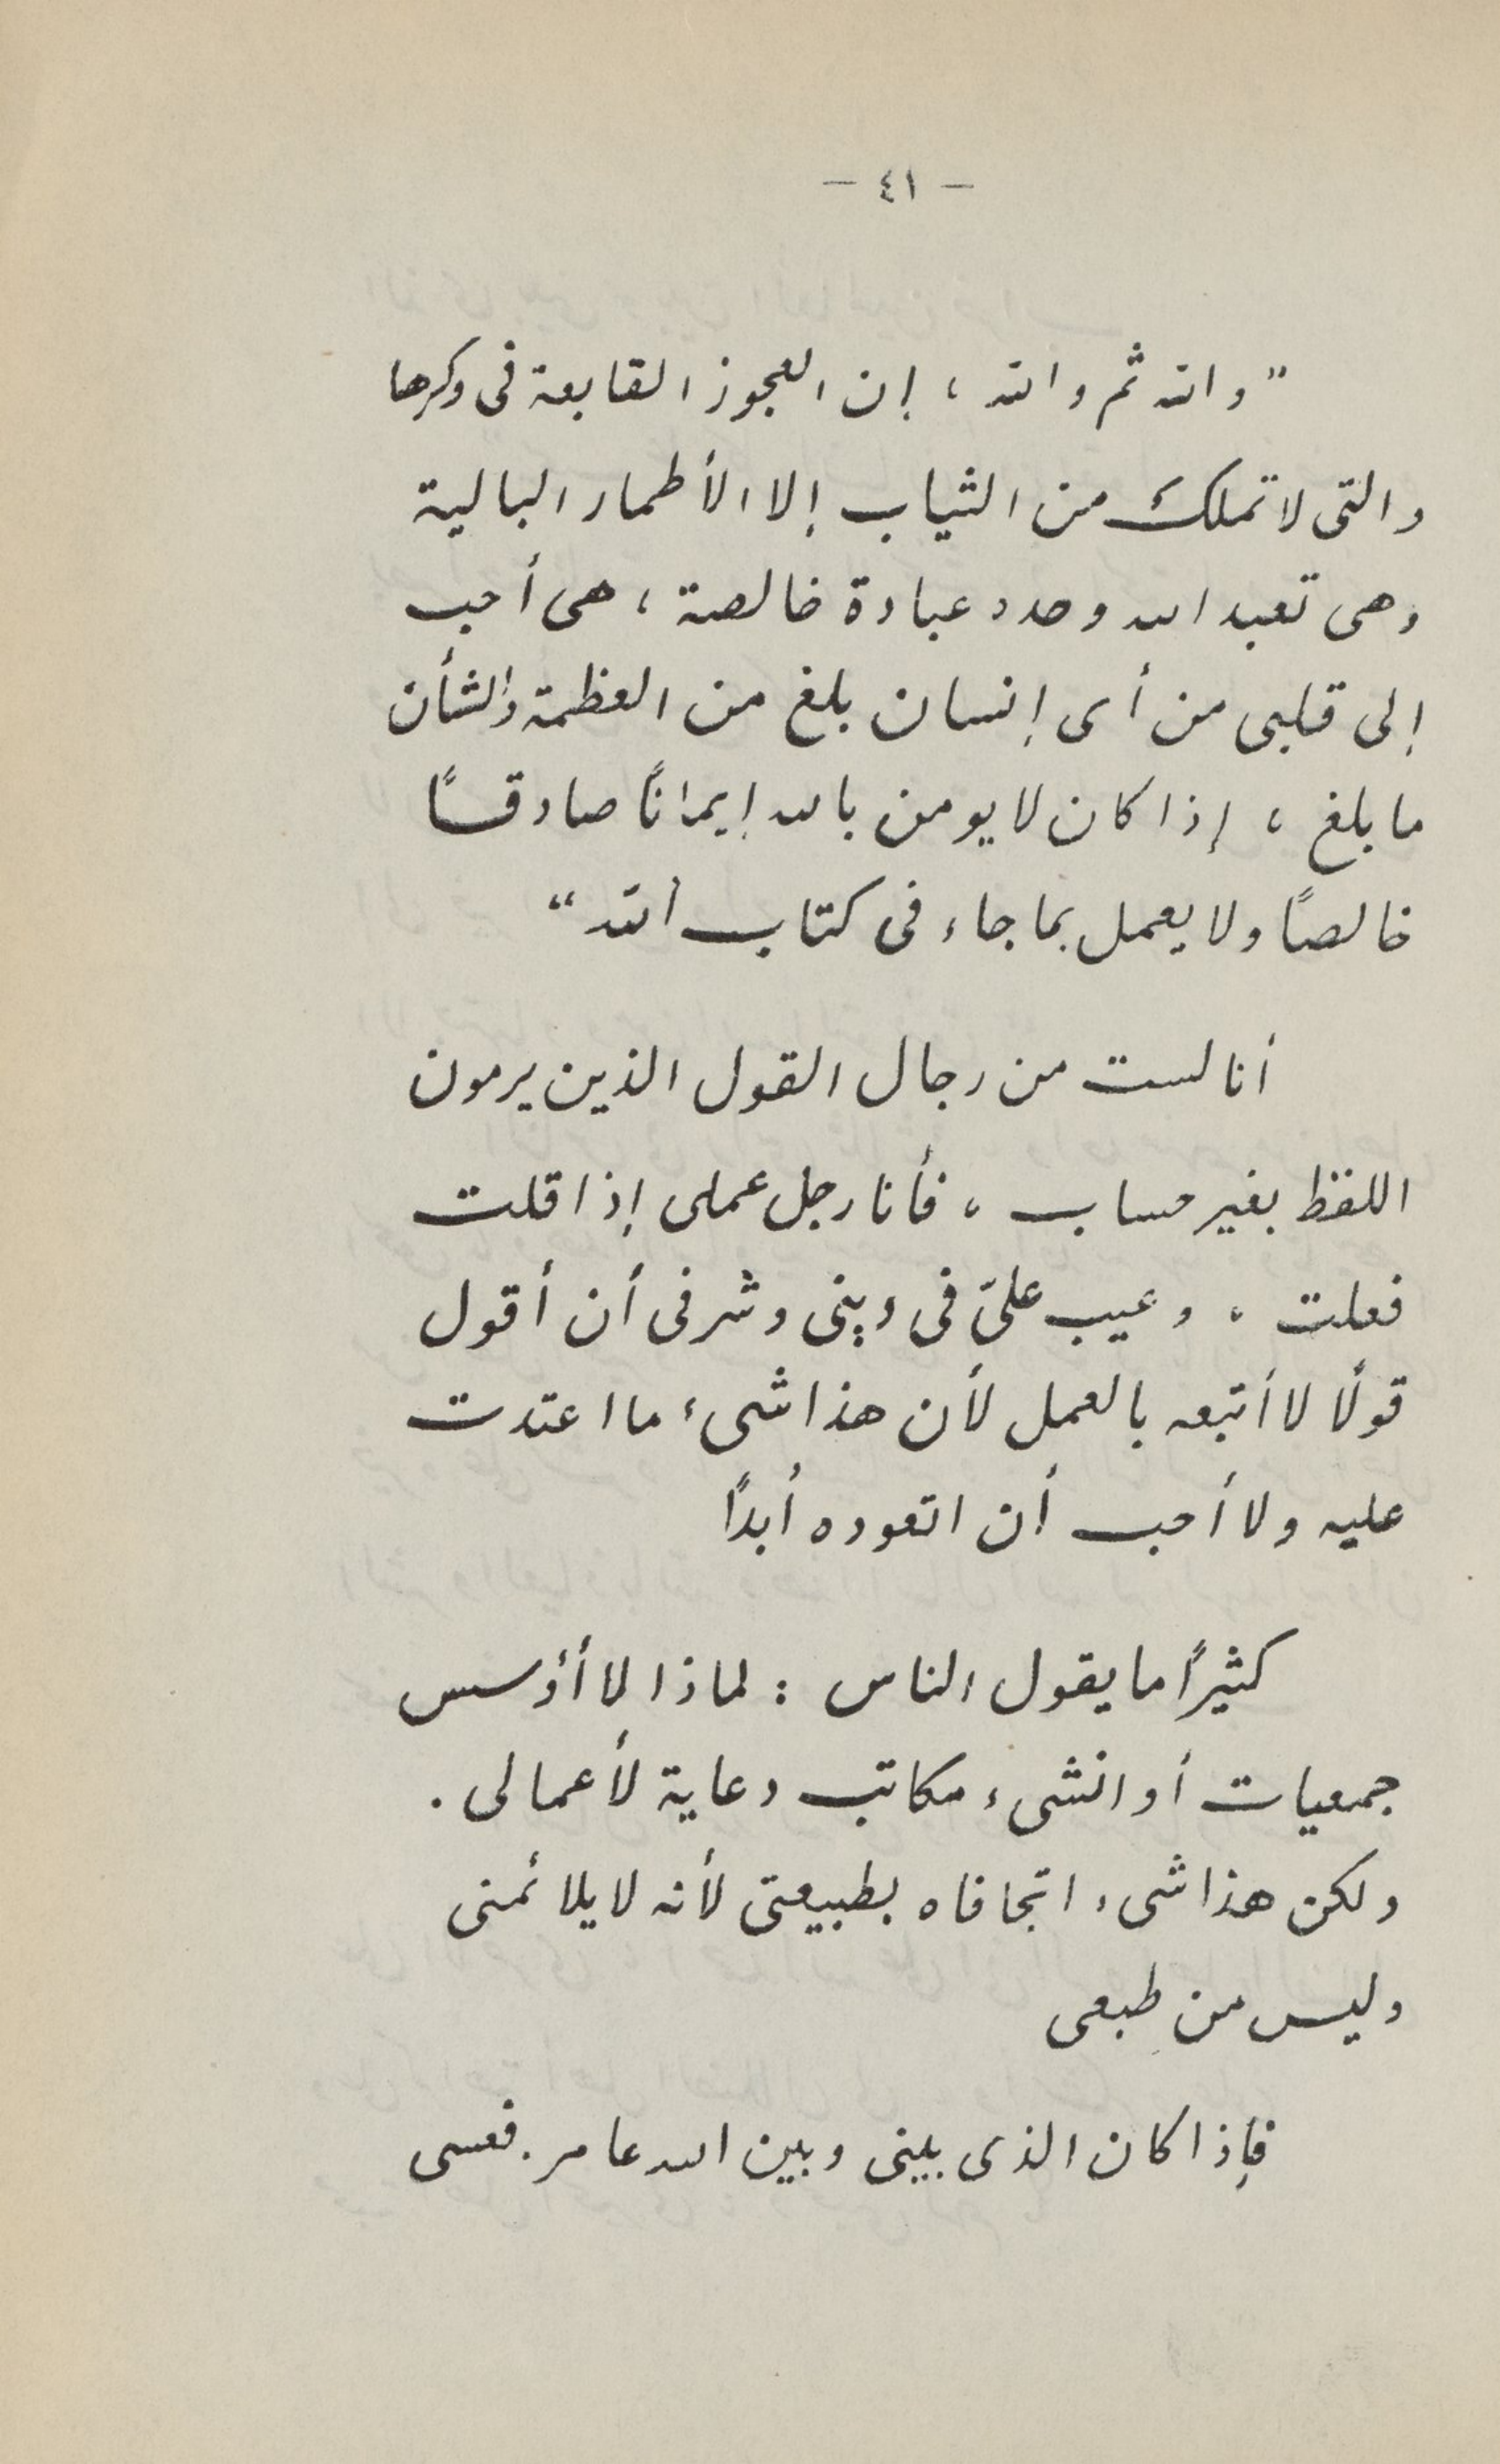 - ٤١ -
"والله ثم والله ، إن العجوز القابعة فى وكرها
والتى لا تملك من الثياب إلا الأطمار البالية
وهى تعبد الله وحده عبادة خالصة ، هى أحب
إلى قلبى من أى إنسان بلغ من العظمة والشأن
ما بلغ ، إذا كان لا يومن بالله إيمانًا صادقًا
خالصًا ولا يعمل بما جاء فى كتاب الله"
أنا لست من رجال القول الذين يرمون
اللفظ بغير حساب ، فأنا رجل عملى إذا قلت
فعلت ، وعيب علىّ فى دينى وشرفى أن أقول
قولًا لا أتبعه بالعمل لأن هذا شىء ما اعتدت
عليه ولا أحب أن اتعوده أبدًا
كثيرًا ما يقول الناس : لماذا لا أؤسس
جمعيات أو انشىء مكاتب دعاية لأعمالى .
ولكن هذا شىء اتجافاه بطبيعتى لأنه لا يلائمنى
وليس من طبعى
فإذا كان الذى بينى وبين الله عامر . فعسى